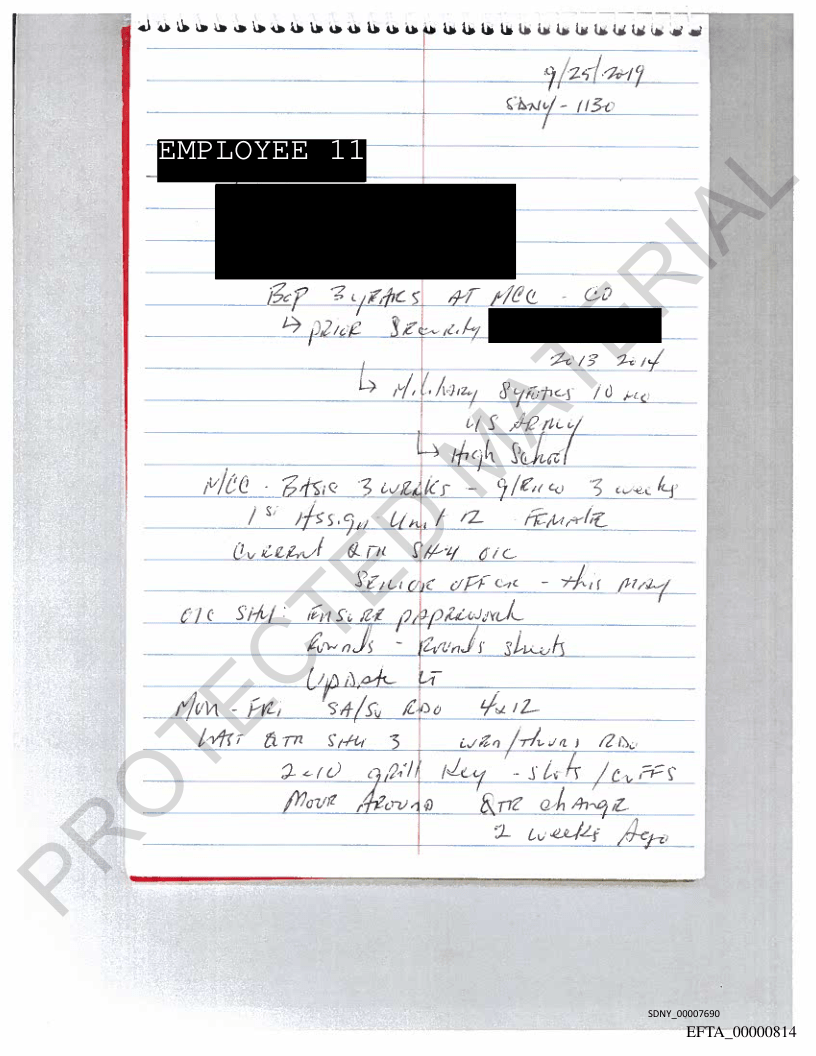 9/25/2019
SDNY - 1130
EMPLOYEE 11
BOP 3 YEARS AT MCC - CO
↳ PRIOR SECURITY
2013 2014
↳ Military 8 years 10 mo
US ARMY
↳ High School
MCC - BASIC 3 WEEKS - 3 weeks
1st Assign Unit 12 FEMALE
Current QTR SHU OIC
SENIOR OFFICER - this MAY
OIC SHU: ENSURE PAPERWORK
Rounds - Rounds sheets
Update LT
MON - FRI SA/SU RDO 4x12
LAST QTR SHU 3 WED/THURS RDO
2x10 grill Key - slots / cuffs
MOVE AROUND QTR change
2 weeks Ago
PROTECTED MATERIAL
SDNY_00007690
EFTA_00000814